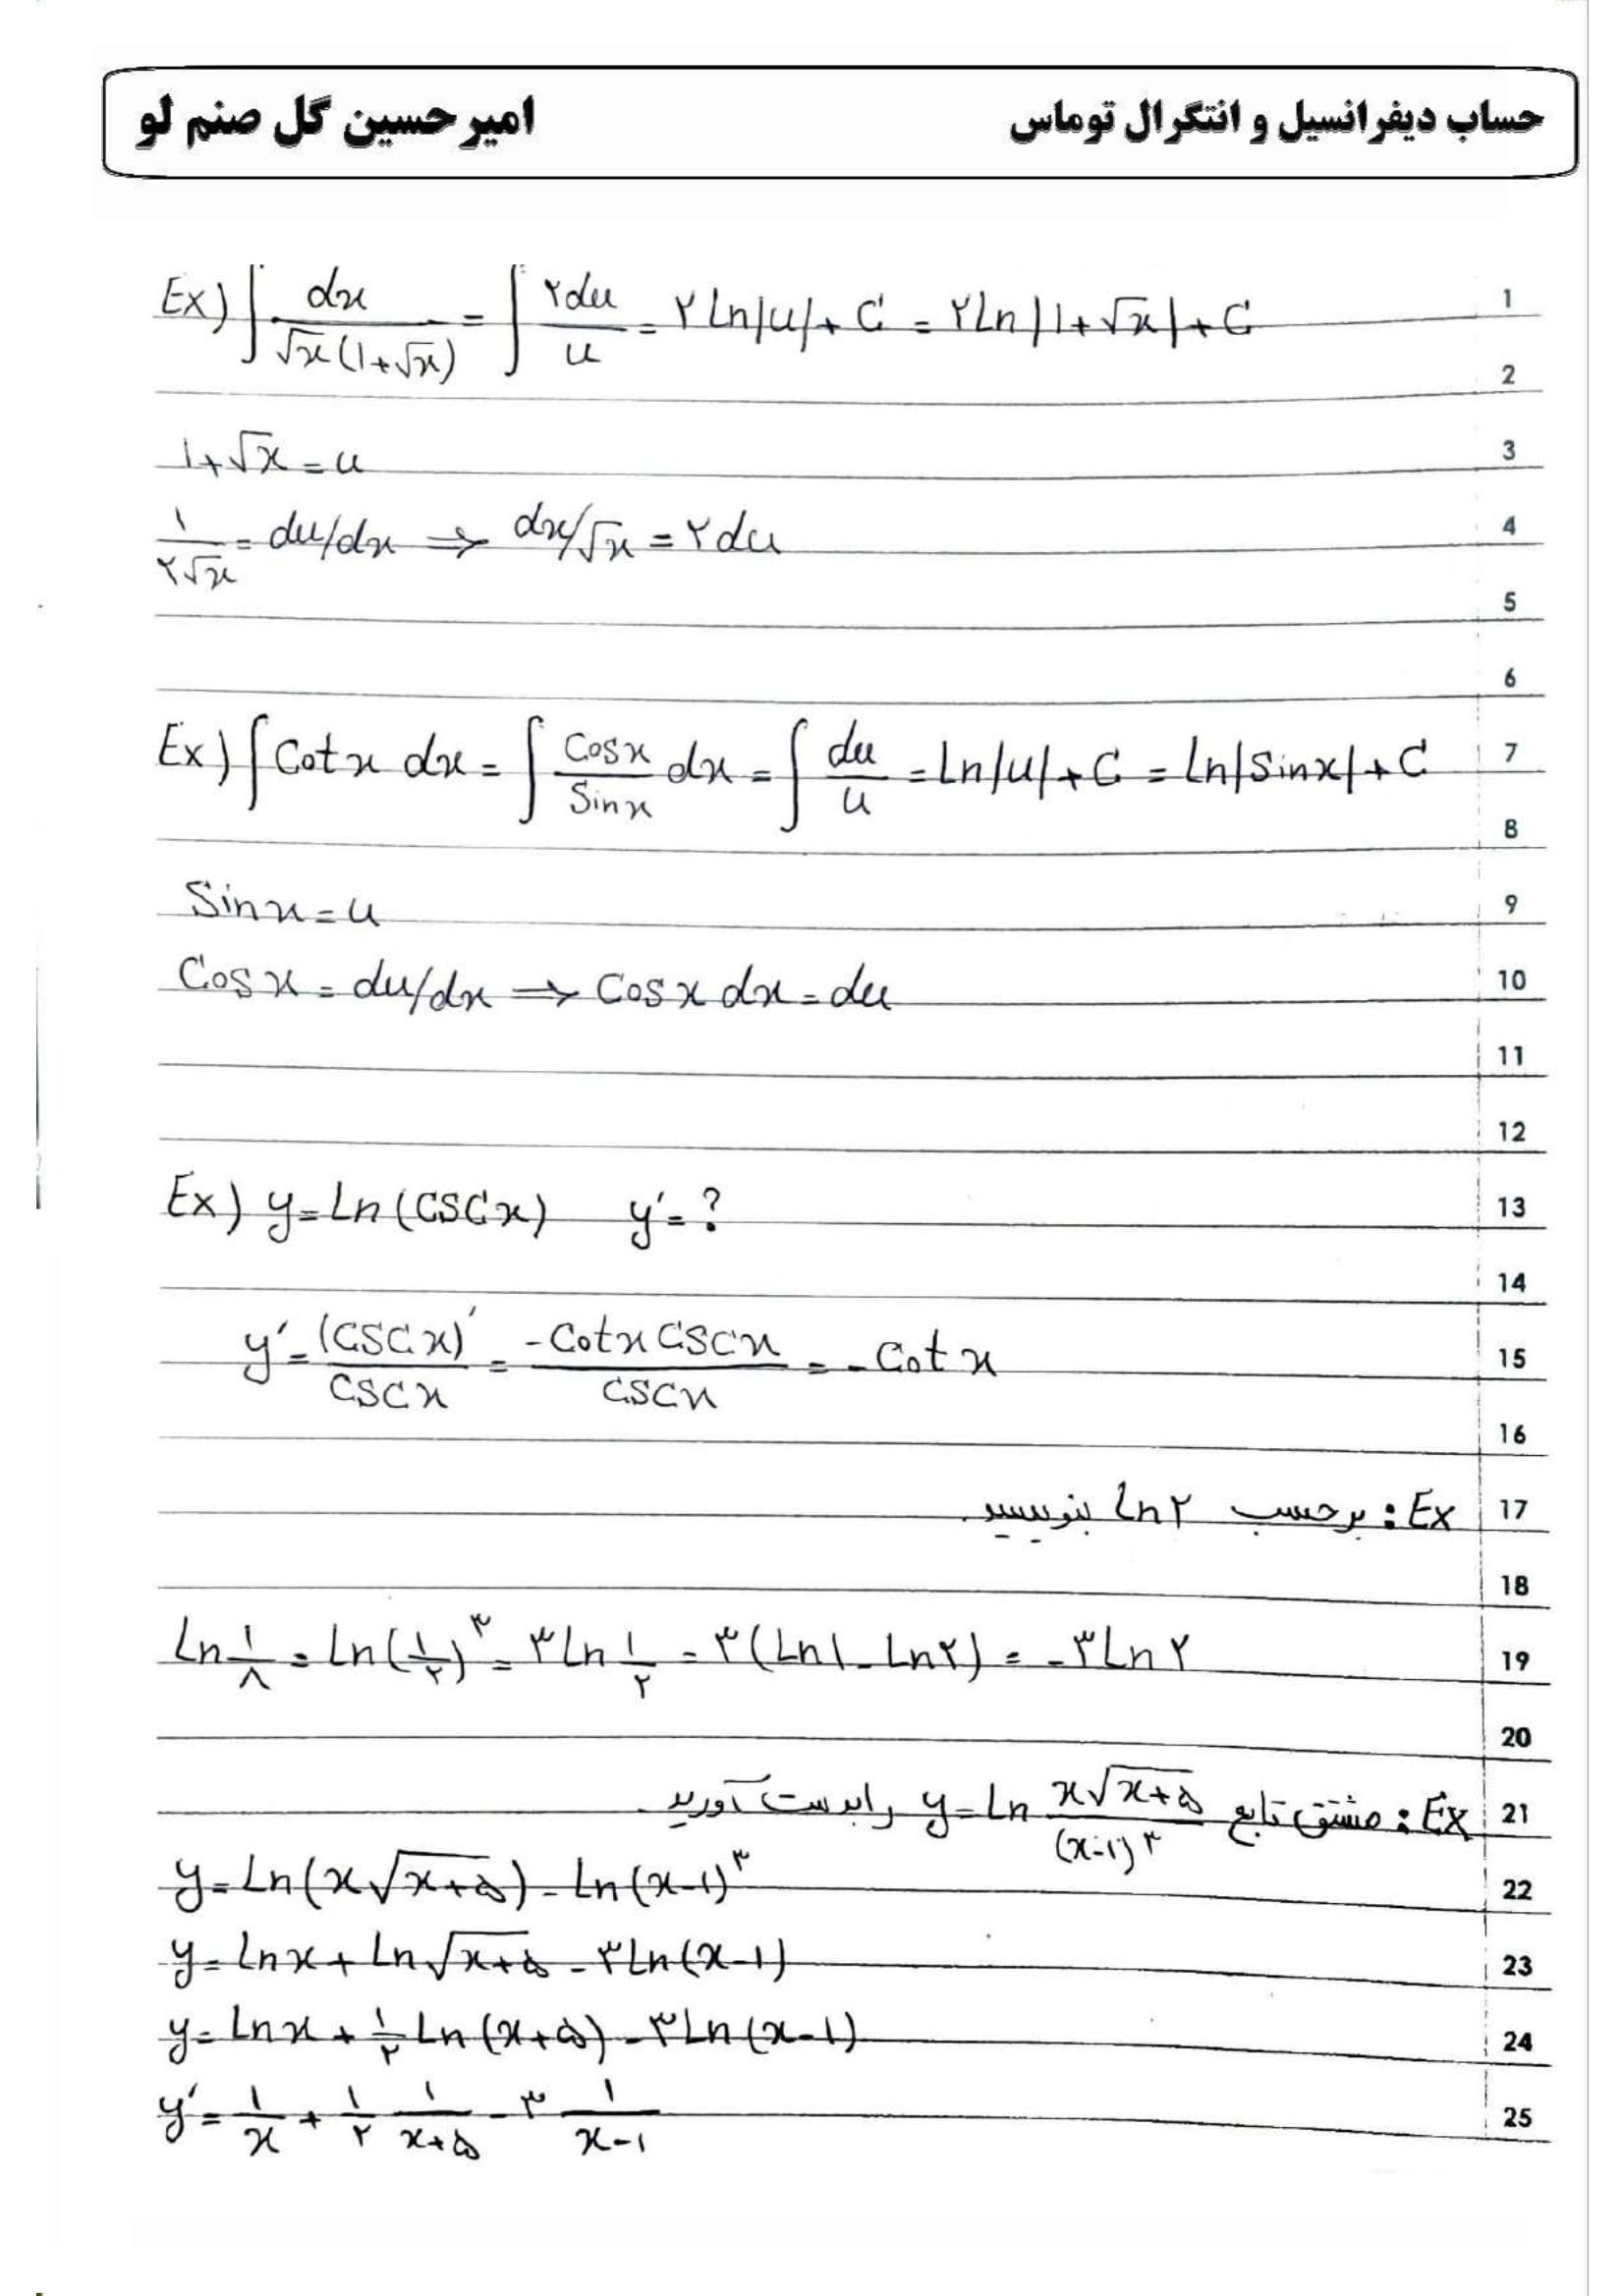 حساب دیفرانسیل و انتگرال توماس
امیرحسین گل صنم لو
Ex) ∫ dx / √x(1+√x) = ∫ ۲du / u = ۲Ln|u|+C = ۲Ln|1+√x|+C 1
2
1+√x=u 3
۱/۲√x = du/dx ⇒ dx/√x = ۲du 4
5
6
Ex) ∫Cotx dx = ∫ Cosx / Sinx dx = ∫ du / u = Ln|u|+C = Ln|Sinx|+C 7
8
Sinx=u 9
Cosx = du/dx ⇒ Cosx dx=du 10
11
12
Ex) y=Ln(CSCx) y′=? 13
14
y′= (CSCx)′ / CSCx = -Cotx CSCx / CSCx = -Cotx 15
16
Ex: برحسب Ln۲ بنویسید. 17
18
Ln ۱/۸ = Ln(۱/۲)^۳ = ۳Ln ۱/۲ = ۳(Ln۱-Ln۲) = -۳Ln۲ 19
20
Ex: مشتق تابع y=Ln x√x+۵ / (x-۱)^۳ رابدست آورید. 21
y=Ln(x√x+۵)-Ln(x-۱)^۳ 22
y=Lnx+Ln√x+۵-۳Ln(x-۱) 23
y=Lnx+۱/۲ Ln(x+۵)-۳Ln(x-۱) 24
y′= ۱/x + ۱/۲ ۱/x+۵ - ۳ ۱/x-۱ 25